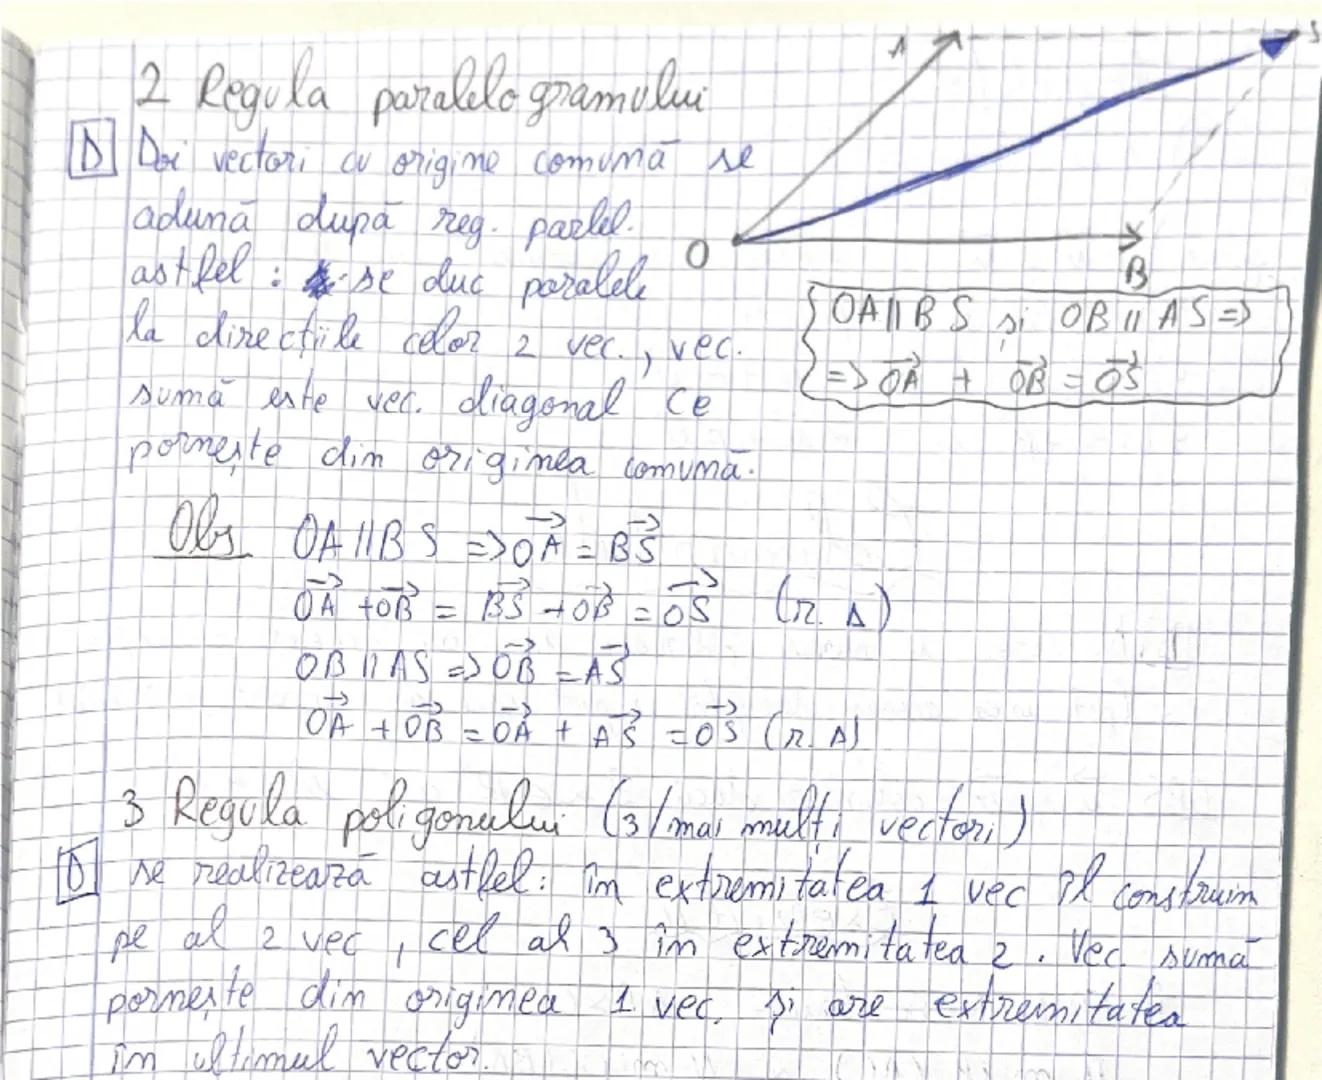 A
S
2 Regula paralelogramului
D Doi vectori cu origine comună se
adună după reg. parlel.
O
B
astfel : se duc paralele
la direcțiile celor 2 vec., vec.
OA || BS și OB || AS =>
=> $\overrightarrow{OA}$ + $\overrightarrow{OB}$ = $\overrightarrow{OS}$
sumă este vec. diagonal ce
pornește din originea comună.
Obs OA || BS => $\overrightarrow{OA}$ = $\overrightarrow{BS}$
$\overrightarrow{OA}$ + $\overrightarrow{OB}$ = $\overrightarrow{BS}$ + $\overrightarrow{OB}$ = $\overrightarrow{OS}$ (r. Δ)
OB || AS => $\overrightarrow{OB}$ = $\overrightarrow{AS}$
$\overrightarrow{OA}$ + $\overrightarrow{OB}$ = $\overrightarrow{OA}$ + $\overrightarrow{AS}$ = $\overrightarrow{OS}$ (r. Δ)
3 Regula poligonului (3/mai mulți vectori)
D se realizează astfel: în extremitatea 1 vec îl construim
pe al 2 vec, cel al 3 în extremitatea 2. Vec. sumă
pornește din originea 1 vec. și are extremitatea
în ultimul vector.